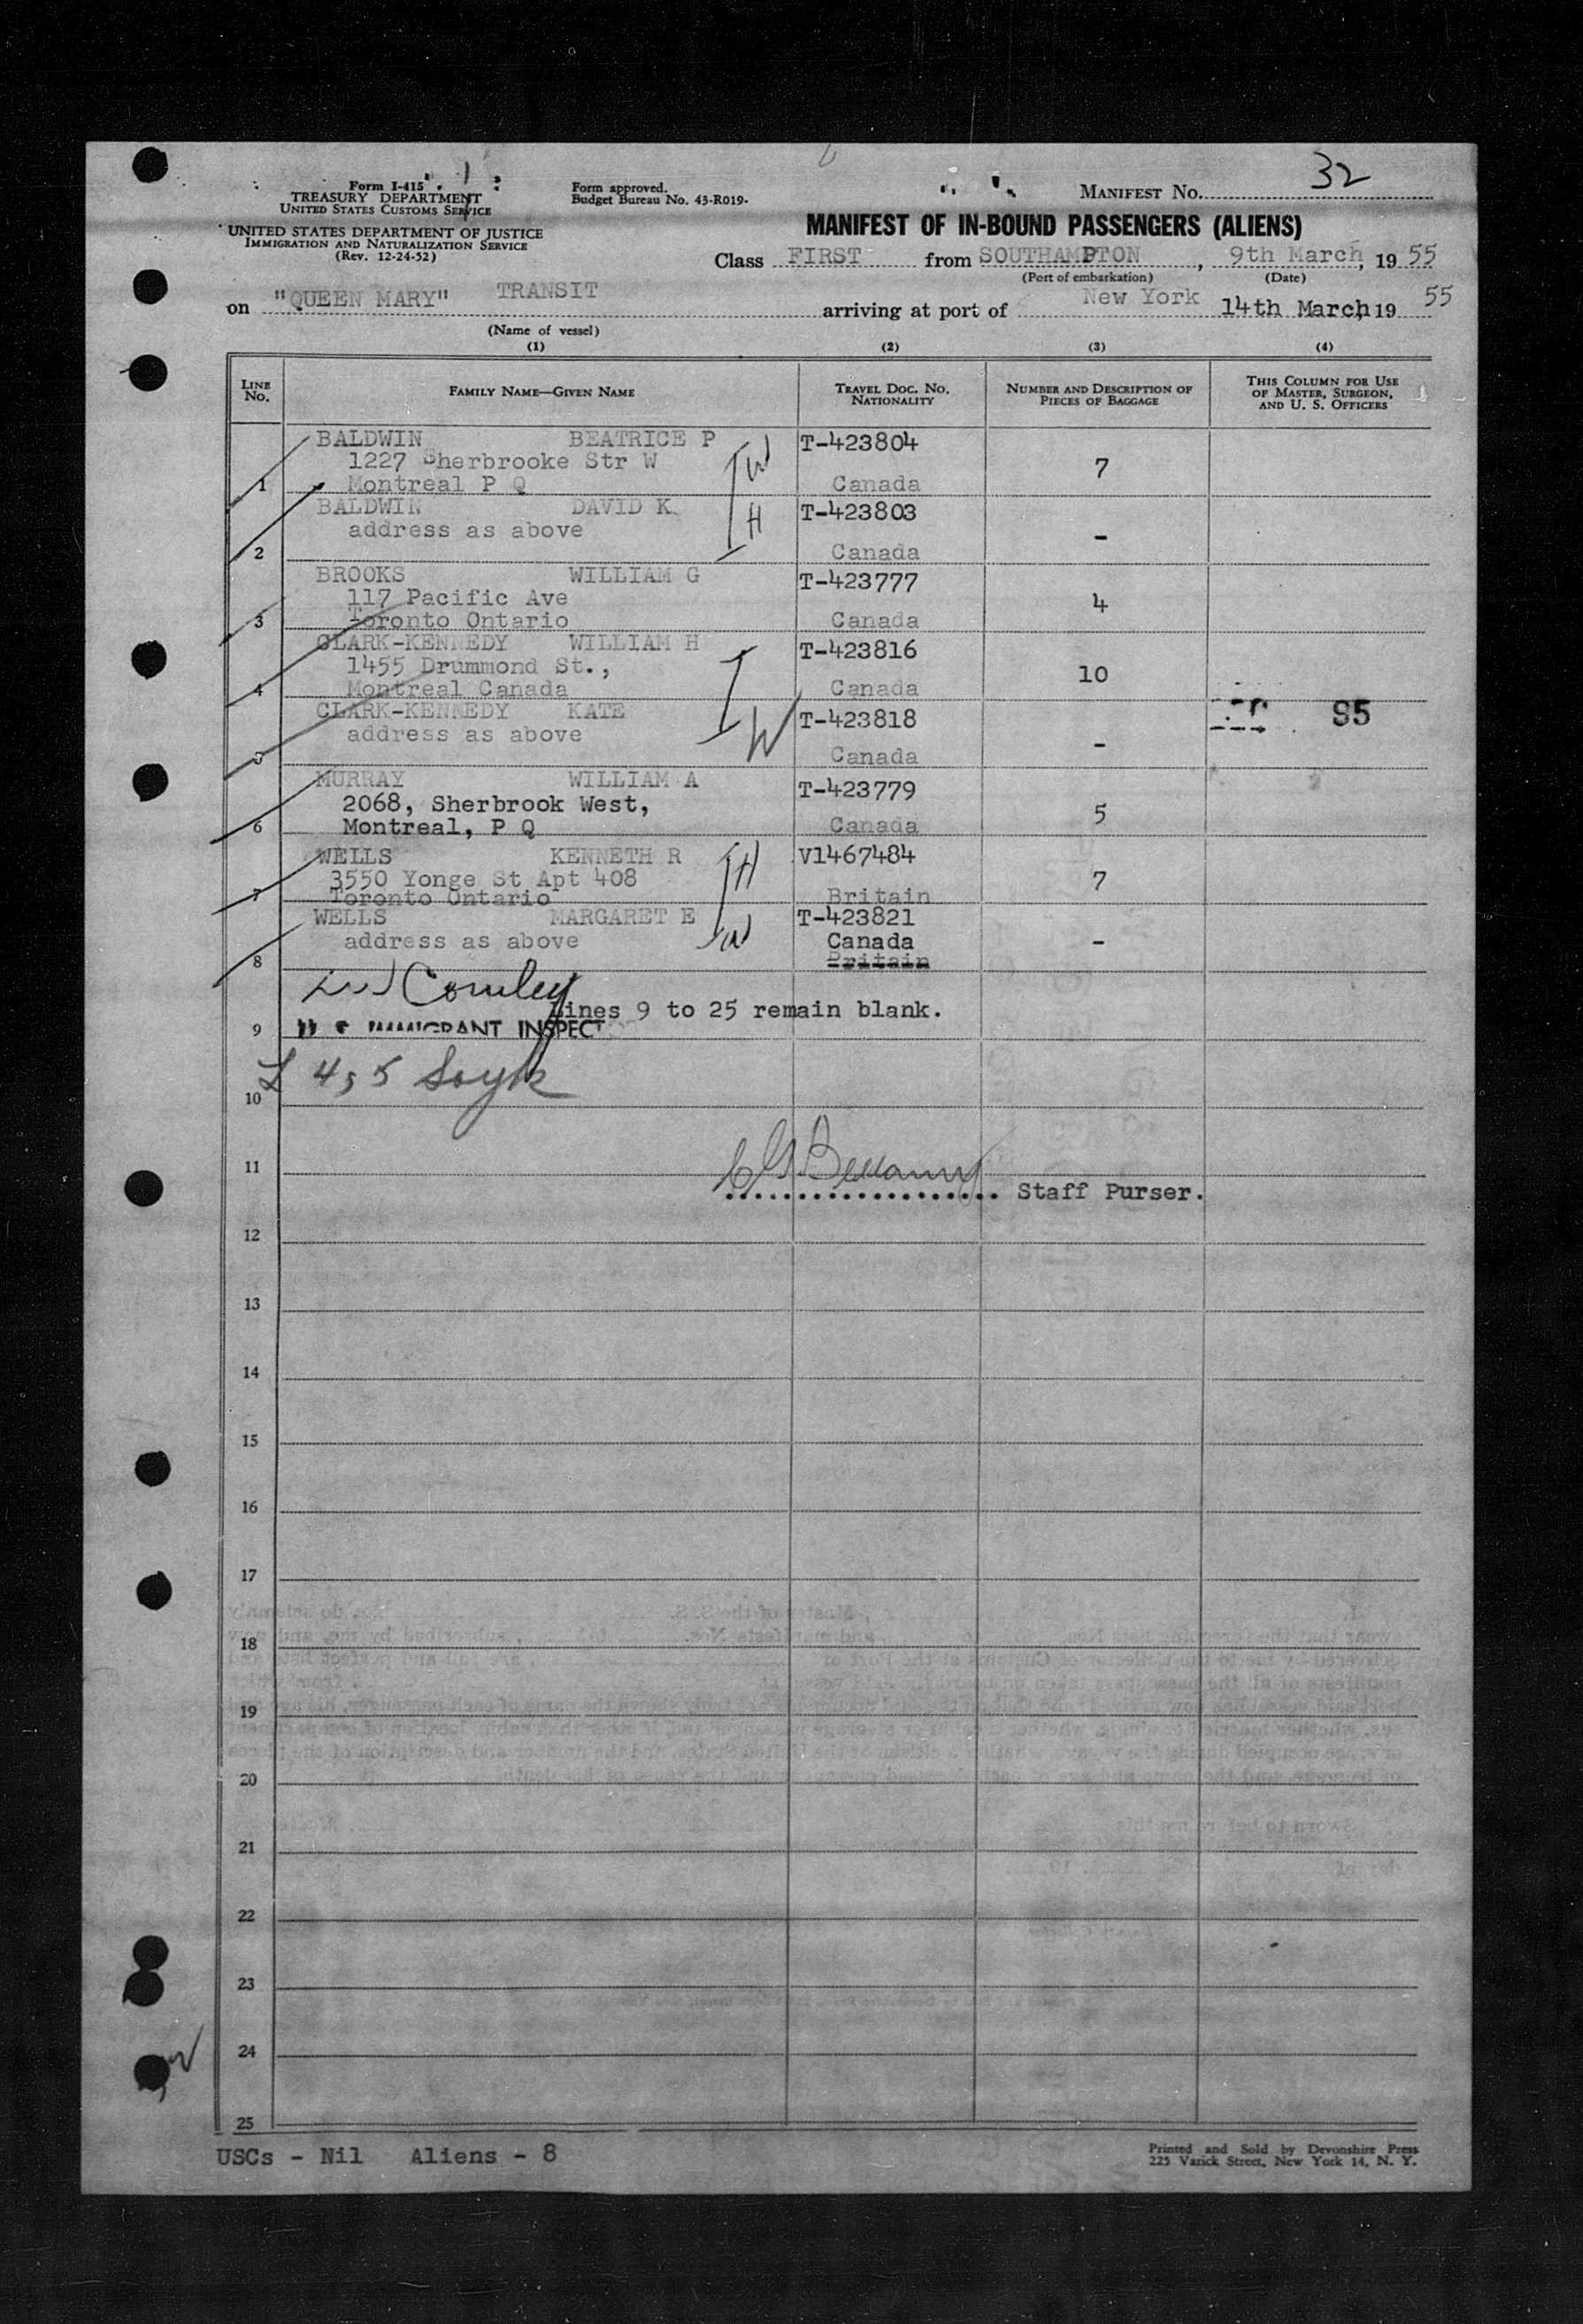 Form I-415
TREASURY DEPARTMENT
UNITED STATES CUSTOMS SERVICE
UNITED STATES DEPARTMENT OF JUSTICE
IMMIGRATION AND NATURALIZATION SERVICE
(Rev. 12-24-52)
Form approved.
Budget Bureau No. 43-R019.
MANIFEST NO. 32
MANIFEST OF IN-BOUND PASSENGERS (ALIENS)
Class FIRST from SOUTHAMPTON, 9th March, 19 55
(Port of embarkation) (Date)
on "QUEEN MARY" TRANSIT arriving at port of New York 14th March, 19 55
(Name of vessel)
(1) (2) (3) (4)
LINE NO. FAMILY NAME—GIVEN NAME TRAVEL DOC. NO. NATIONALITY NUMBER AND DESCRIPTION OF PIECES OF BAGGAGE THIS COLUMN FOR USE OF MASTER, SURGEON, AND U. S. OFFICERS
BALDWIN BEATRICE P W T-423804
1227 Sherbrooke Str W 7
1 Montreal P Q Canada
BALDWIN DAVID K. H T-423803
address as above -
2 Canada
BROOKS WILLIAM G T-423777
117 Pacific Ave 4
3 Toronto Ontario Canada
CLARK-KENNEDY WILLIAM H T-423816
1455 Drummond St., 10
4 Montreal Canada Canada
CLARK-KENNEDY KATE T-423818 S5
address as above W -
5 Canada
MURRAY WILLIAM A T-423779
2068, Sherbrook West, 5
6 Montreal, P Q Canada
WELLS KENNETH R H V1467484
3550 Yonge St Apt 408 7
7 Toronto Ontario Britain
WELLS MARGARET E W T-423821
address as above Canada -
8 Britain
Comley
Lines 9 to 25 remain blank.
9 U S IMMIGRANT INSPECT
L 4, 5 Soyk
10
11 Bellamy
Staff Purser.
12
13
14
15
16
17
18
19
20
21
22
23
24
25
USCs - Nil Aliens - 8
Printed and Sold by Devonshire Press
225 Varick Street, New York 14, N. Y.